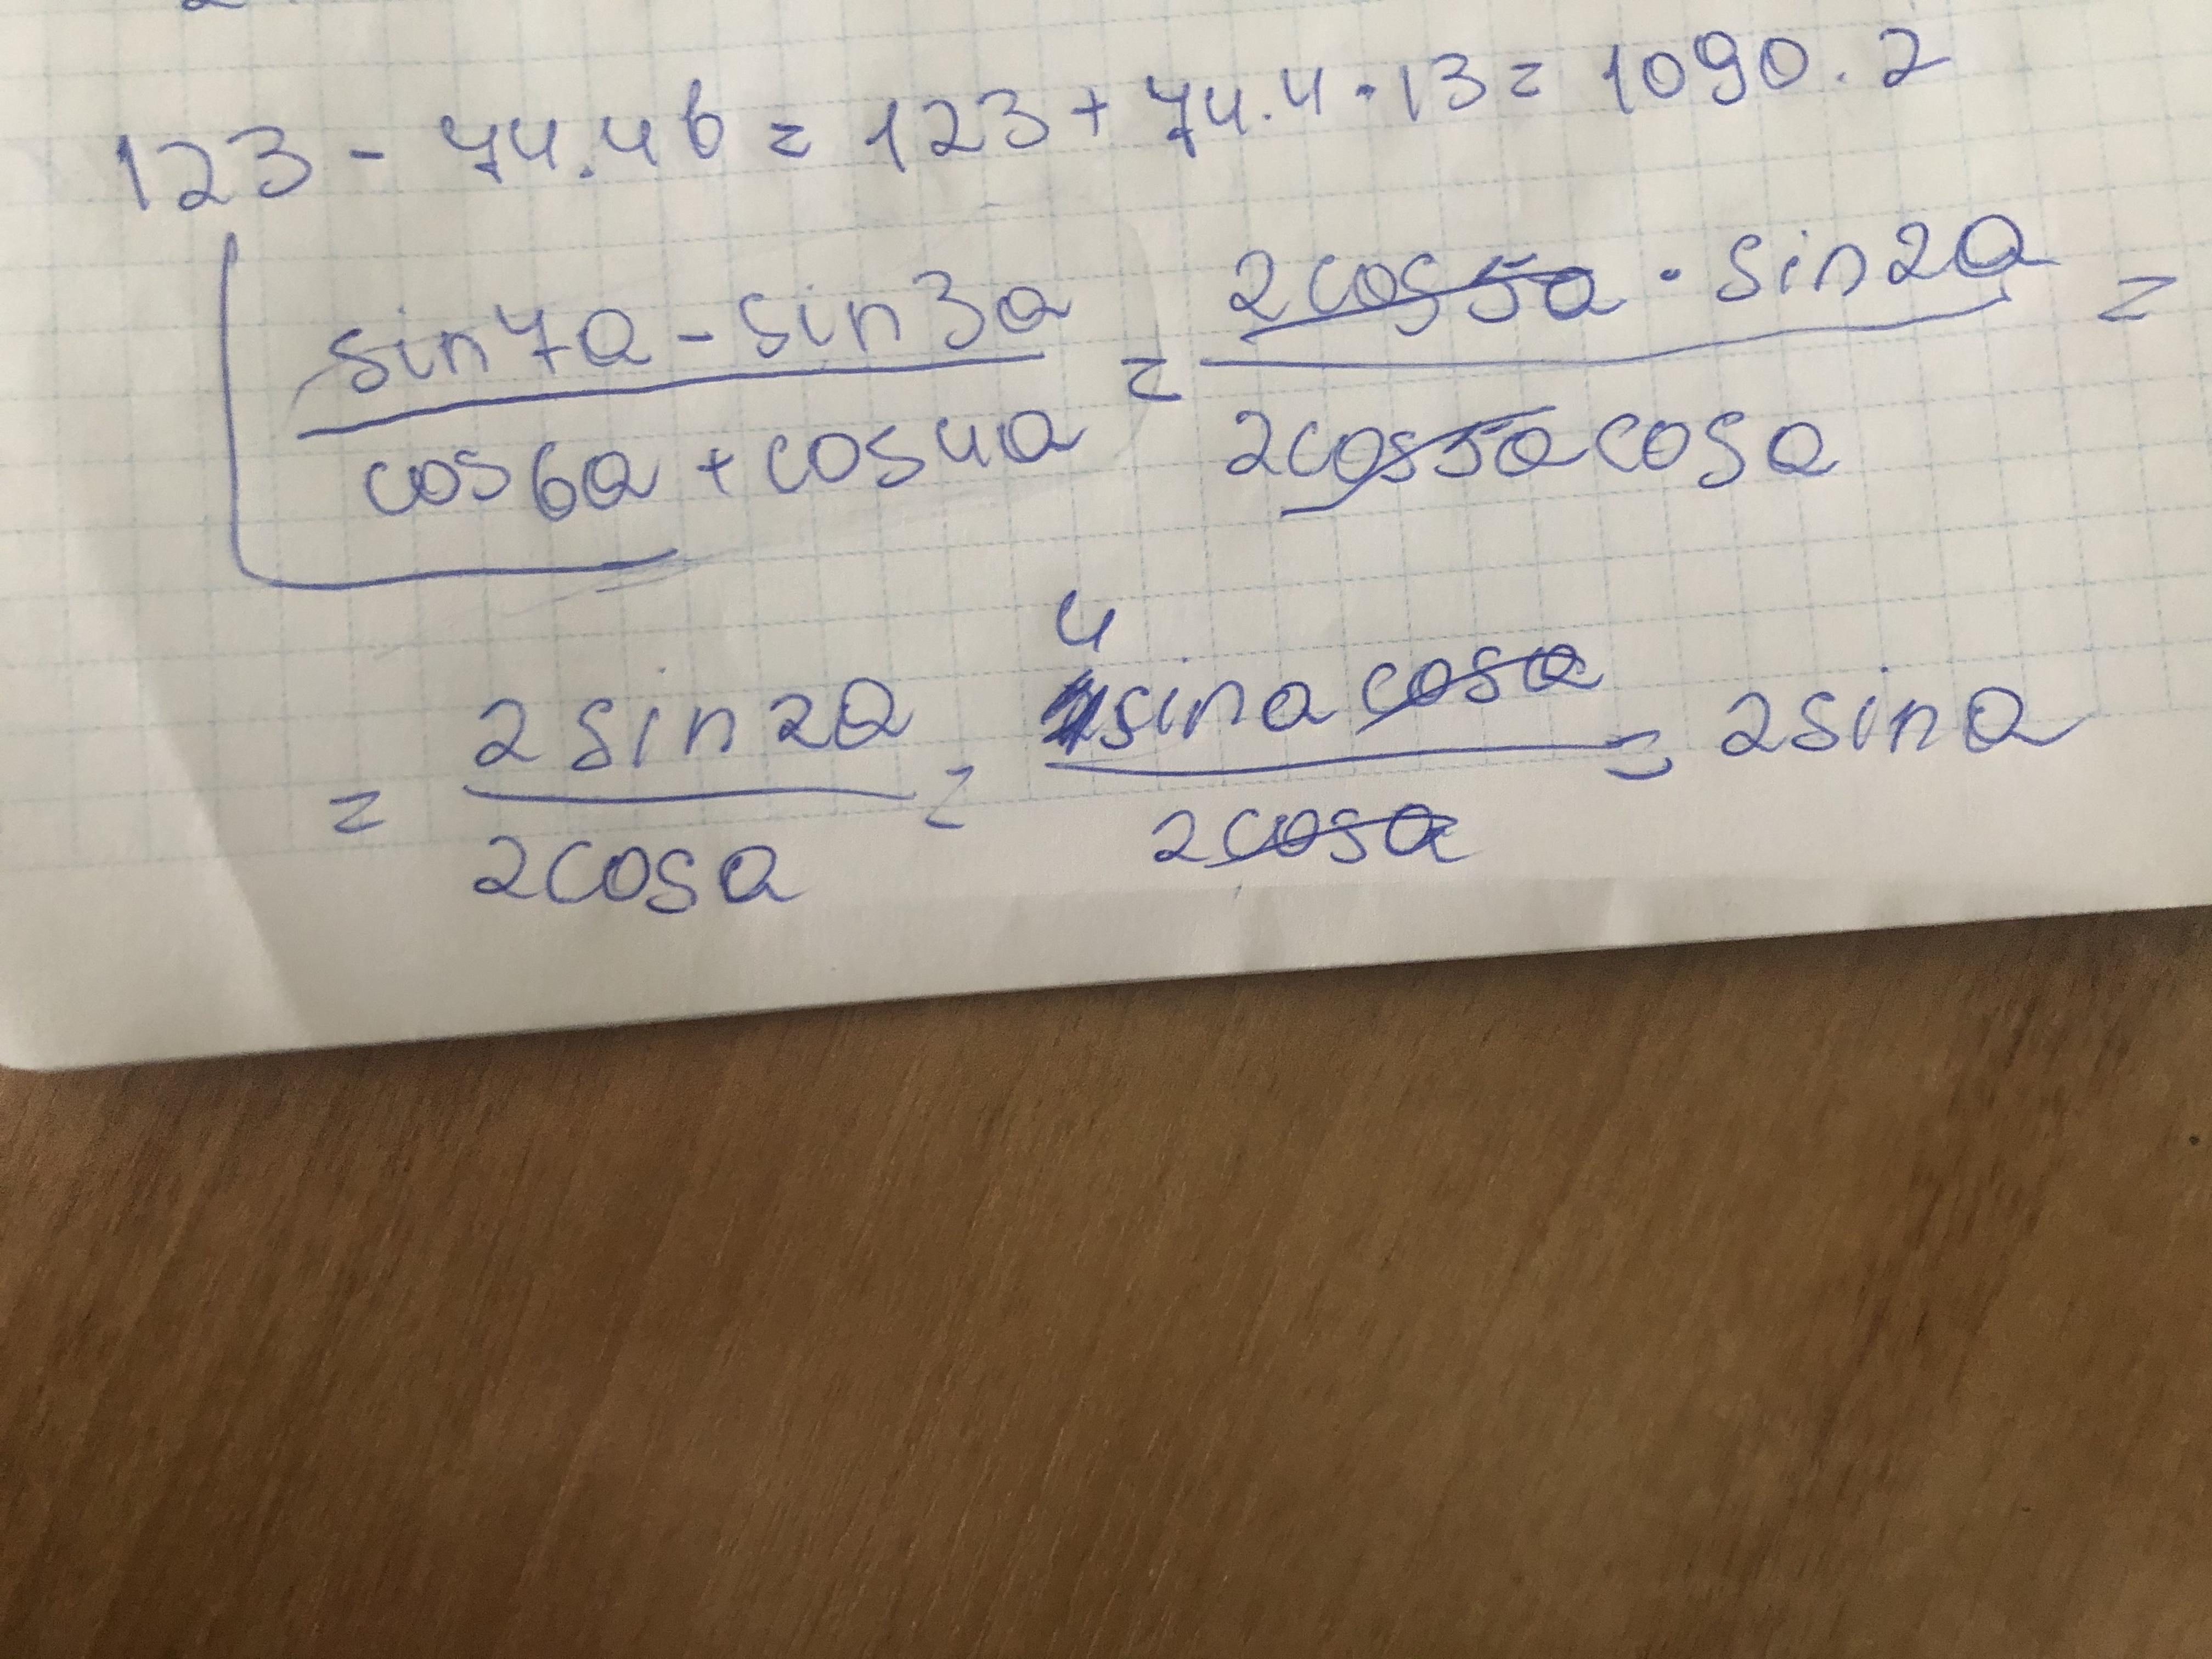 123 - 74.4b = 123 + 74.4 · 13 = 1090.2
sin7a - sin3a / cos6a + cos4a = 2cos5a · sin2a / 2cos5a cosa =
= 2sin2a / 2cosa = 4sina cosa / 2cosa = 2sina